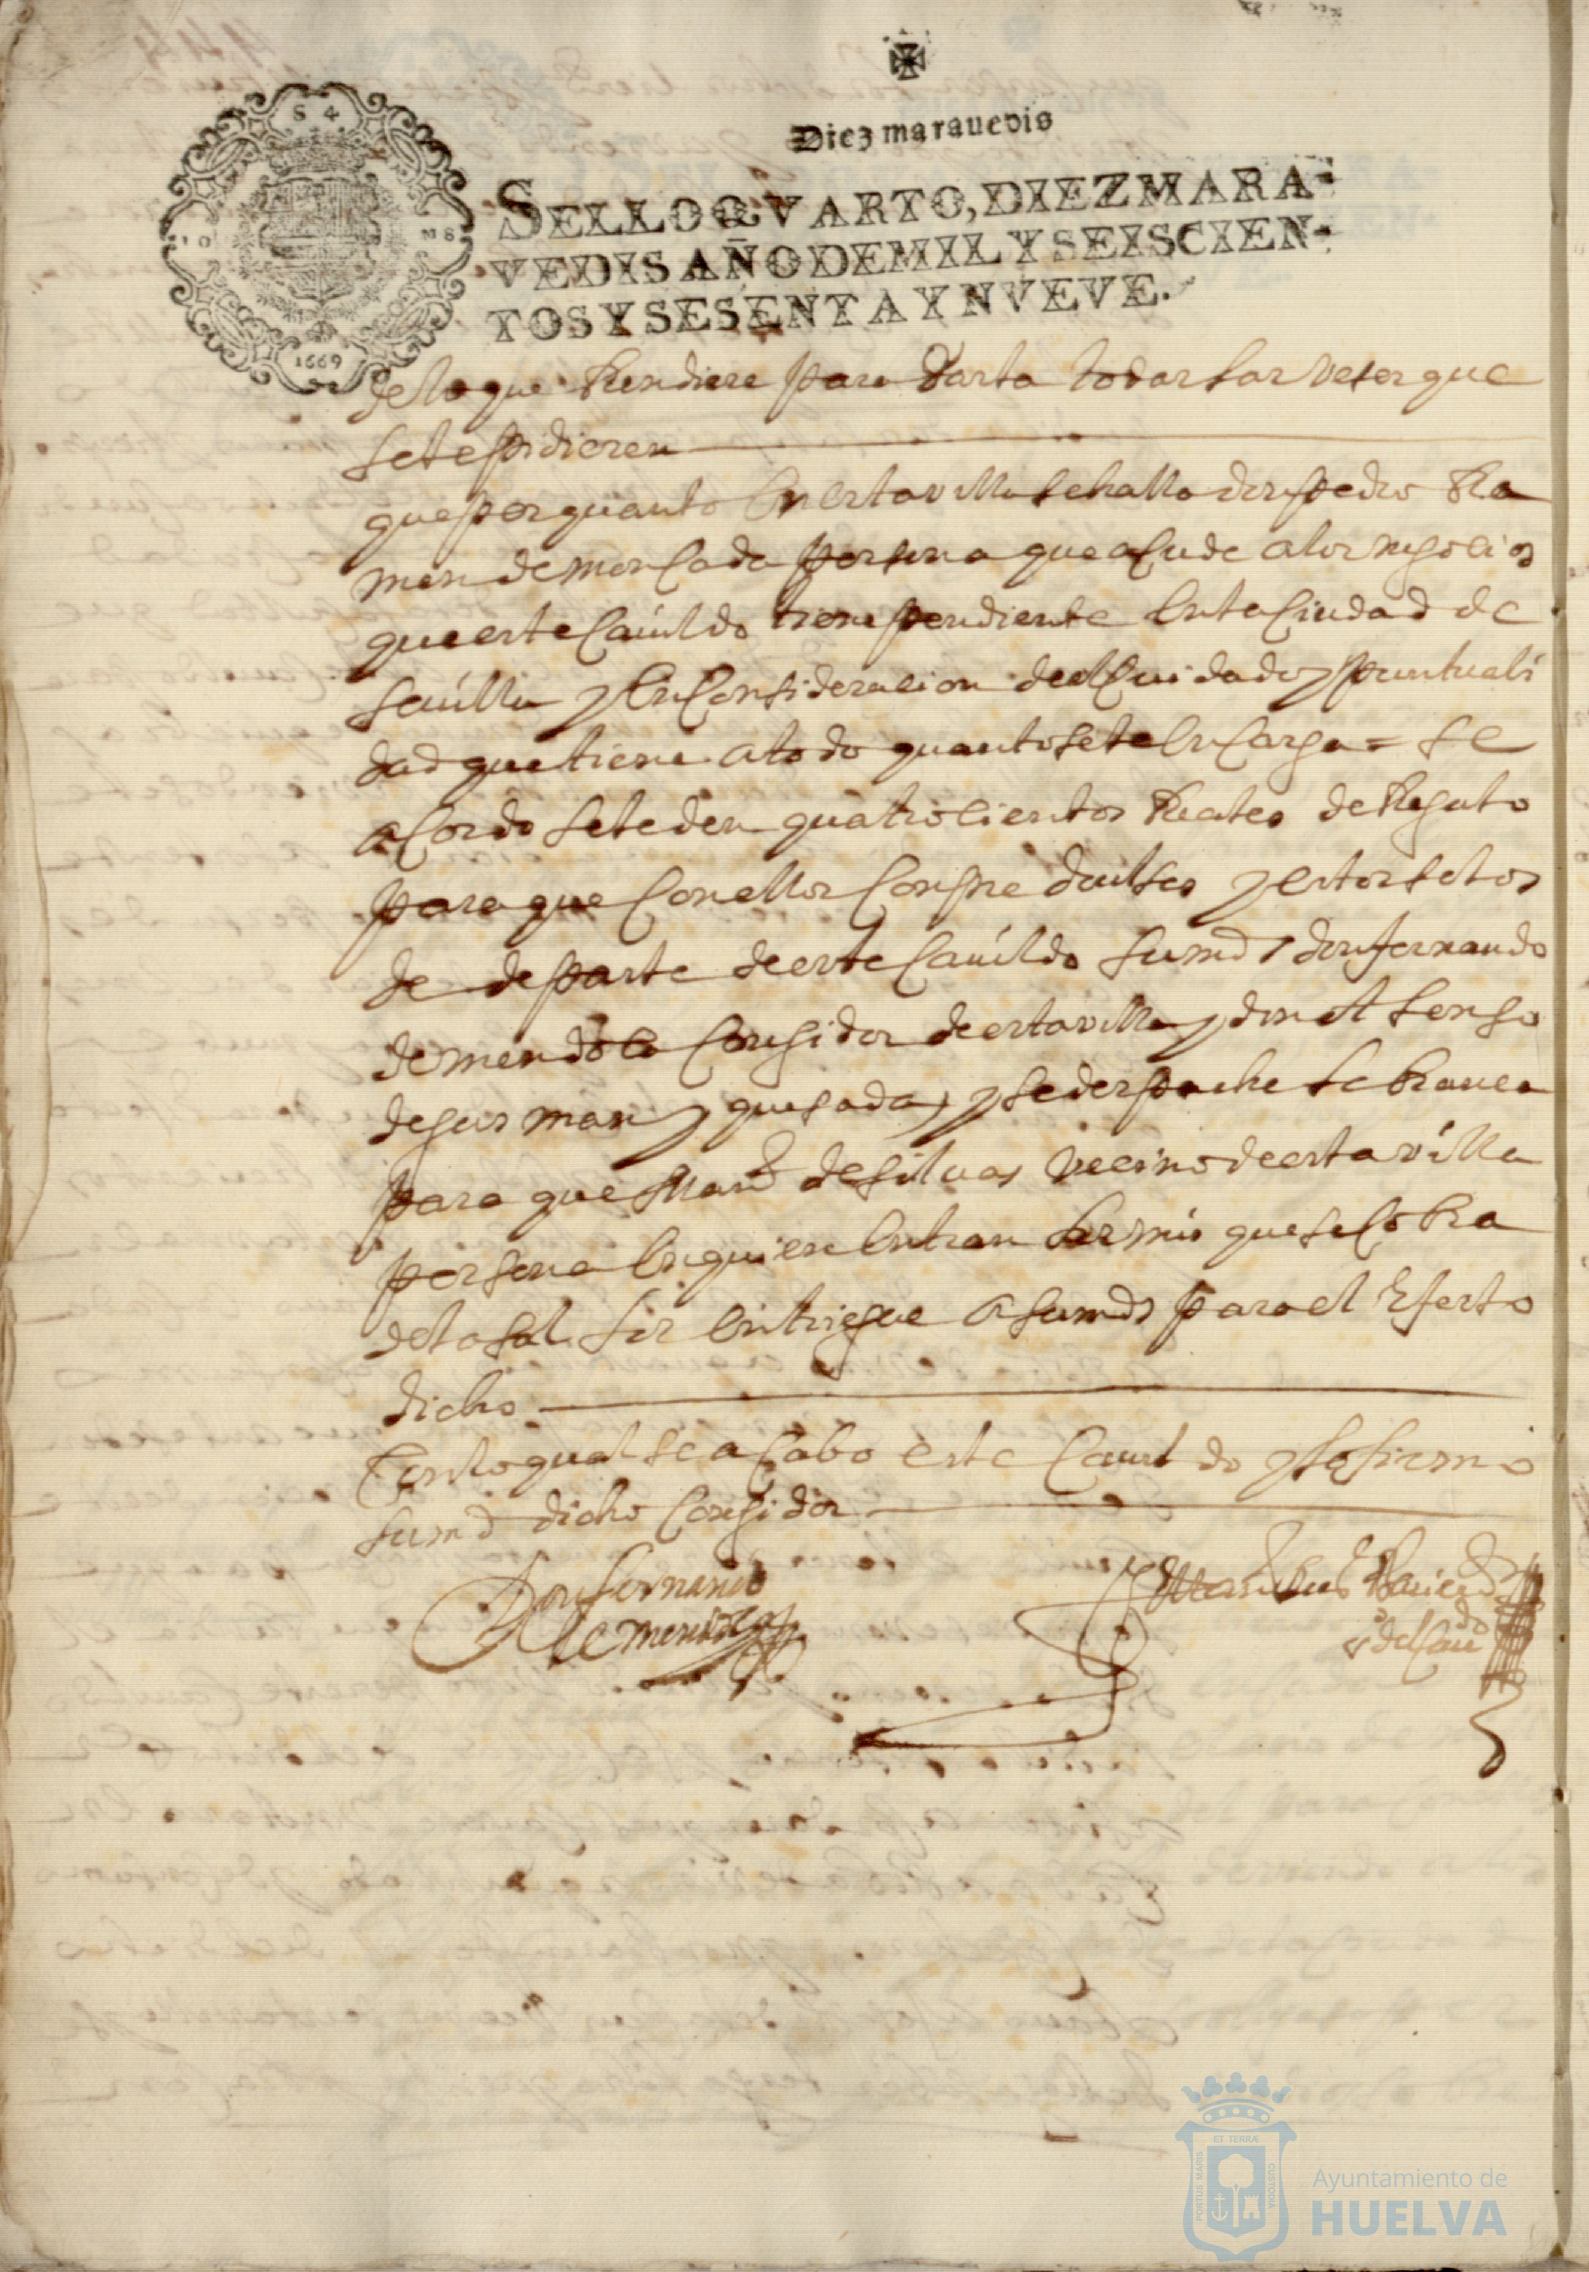 Diez marauedis
S 4
1 0
M S
1669
SELLO QVARTO, DIEZ MARA-
VEDIS AÑO DE MIL Y SEISCIEN-
TOS Y SESENTA Y NVEVE.
de lo que Rendiere para Darta todas las veses que
se le pidieren
que por quanto en esta villa se halla don pedro Ra
mon de moncada persona que acude a los negocios
que este Cauildo tiene pendiente en la Ciudad de
seuilla y en Consideracion del Cuidado y puntuali
dad que tiene a todo quanto se le encarga = se
acordo se le den quatrocientos Reales de Regalo
para que con ellos compre dulses y estos se los
de de parte de este Cauildo su md don fernando
de mendoca Coregidor de esta villa y don Alonso
de gusman y quesada y se despache libranca
para que Manl de siluas vecino de esta villa
persona en quien entran los mrs que se cobra
de la sal los entriegue a sus mds para el Efecto
dicho
Con lo qual se acabo este Cauildo y lo firmo
su md dicho Coregidor
Don fernando
de mendoca
del Cauildo
PORTUS MARIS
ET TERRÆ
CUSTODIA
Ayuntamiento de
HUELVA